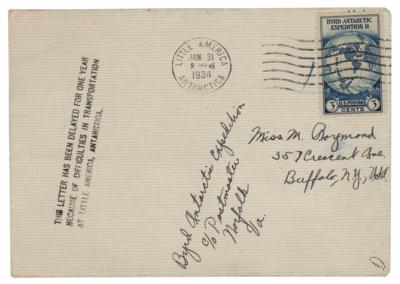 LITTLE AMERICA
JAN 31
1934
ANTARCTICA
BYRD ANTARCTIC
EXPEDITION II
U.S. POSTAGE
3 CENTS 3
THIS LETTER HAS BEEN DELAYED FOR ONE YEAR
BECAUSE OF DIFFICULTIES IN TRANSPORTATION
AT LITTLE AMERICA, ANTARCTICA.
Byrd Antarctic Expedition
c/o Postmaster
Norfolk
Va.
Miss M. Raymond
357 Crescent Ave.
Buffalo, N.Y.,